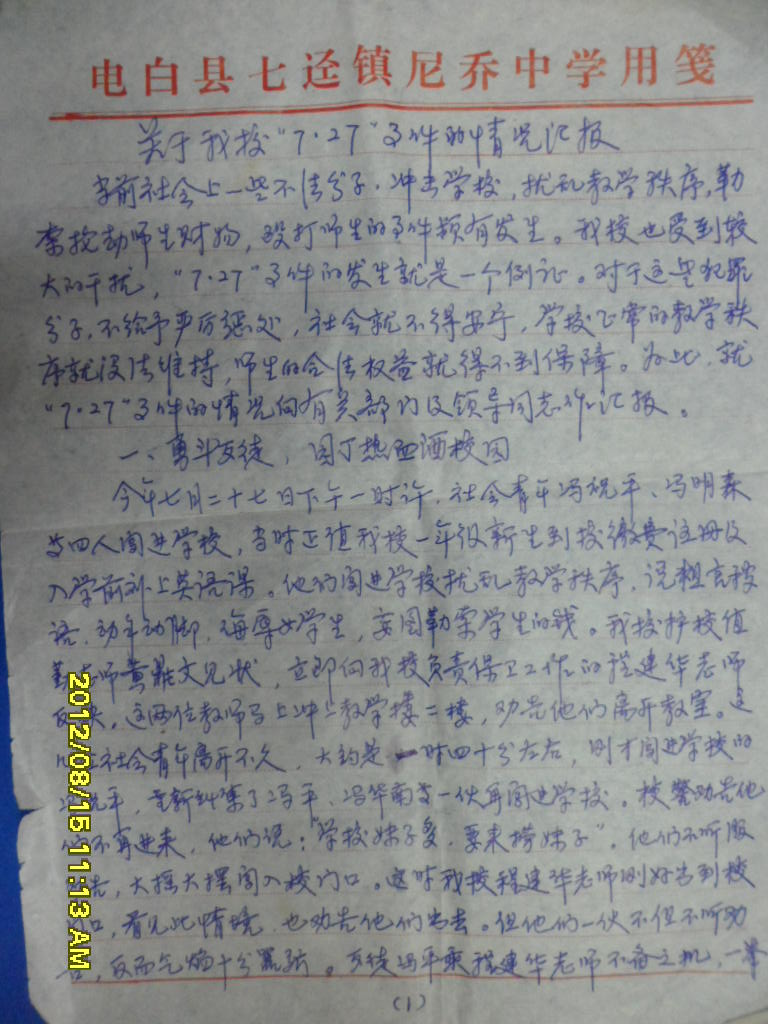 电白县七迳镇尼乔中学用笺
关于我校“7·27”事件的情况汇报
当前社会上一些不法分子，冲击学校，扰乱教学秩序，勒
索抢劫师生财物，殴打师生的事件频有发生。我校也受到较
大的干扰，“7·27”事件的发生就是一个例证。对于这些犯罪
分子，不给予严厉惩处，社会就不得安宁，学校正常的教学秩
序就没法维持，师生的合法权益就得不到保障。为此，就
“7·27”事件的情况向有关部门及领导同志作汇报。
一、勇斗歹徒，园丁热血洒校园
今年七月二十七日下午一时许，社会青年冯祝平、冯明森
等四人闯进学校，当时正值我校一年级新生到校缴费注册及
入学前补上英语课。他们闯进学校扰乱教学秩序，说粗言秽
语，动手动脚，侮辱女学生，妄图勒索学生的钱。我校护校值
勤老师黄 文见状，立即向我校负责保卫工作的程建华老师
反映，这两位教师马上冲上教学楼二楼，劝告他们离开教室。这
社会青年离开不久，大约是一时四十分左右，刚才闯进学校的
祝平，重新纠集了冯平、冯华南等一伙再闯进学校。校警劝告他
们不再进来，他们说：“学校妹子多，要来捞妹子”。他们不听服
告，大摇大摆闯入校门口。这时我校程建华老师刚好出到校
口，看见此情境，也劝告他们出去。但他们一伙不但不听劝
告，反而气焰十分嚣张。歹徒冯平乘程建华老师不备之机，一拳
(1)
2012/08/15 11:13 AM